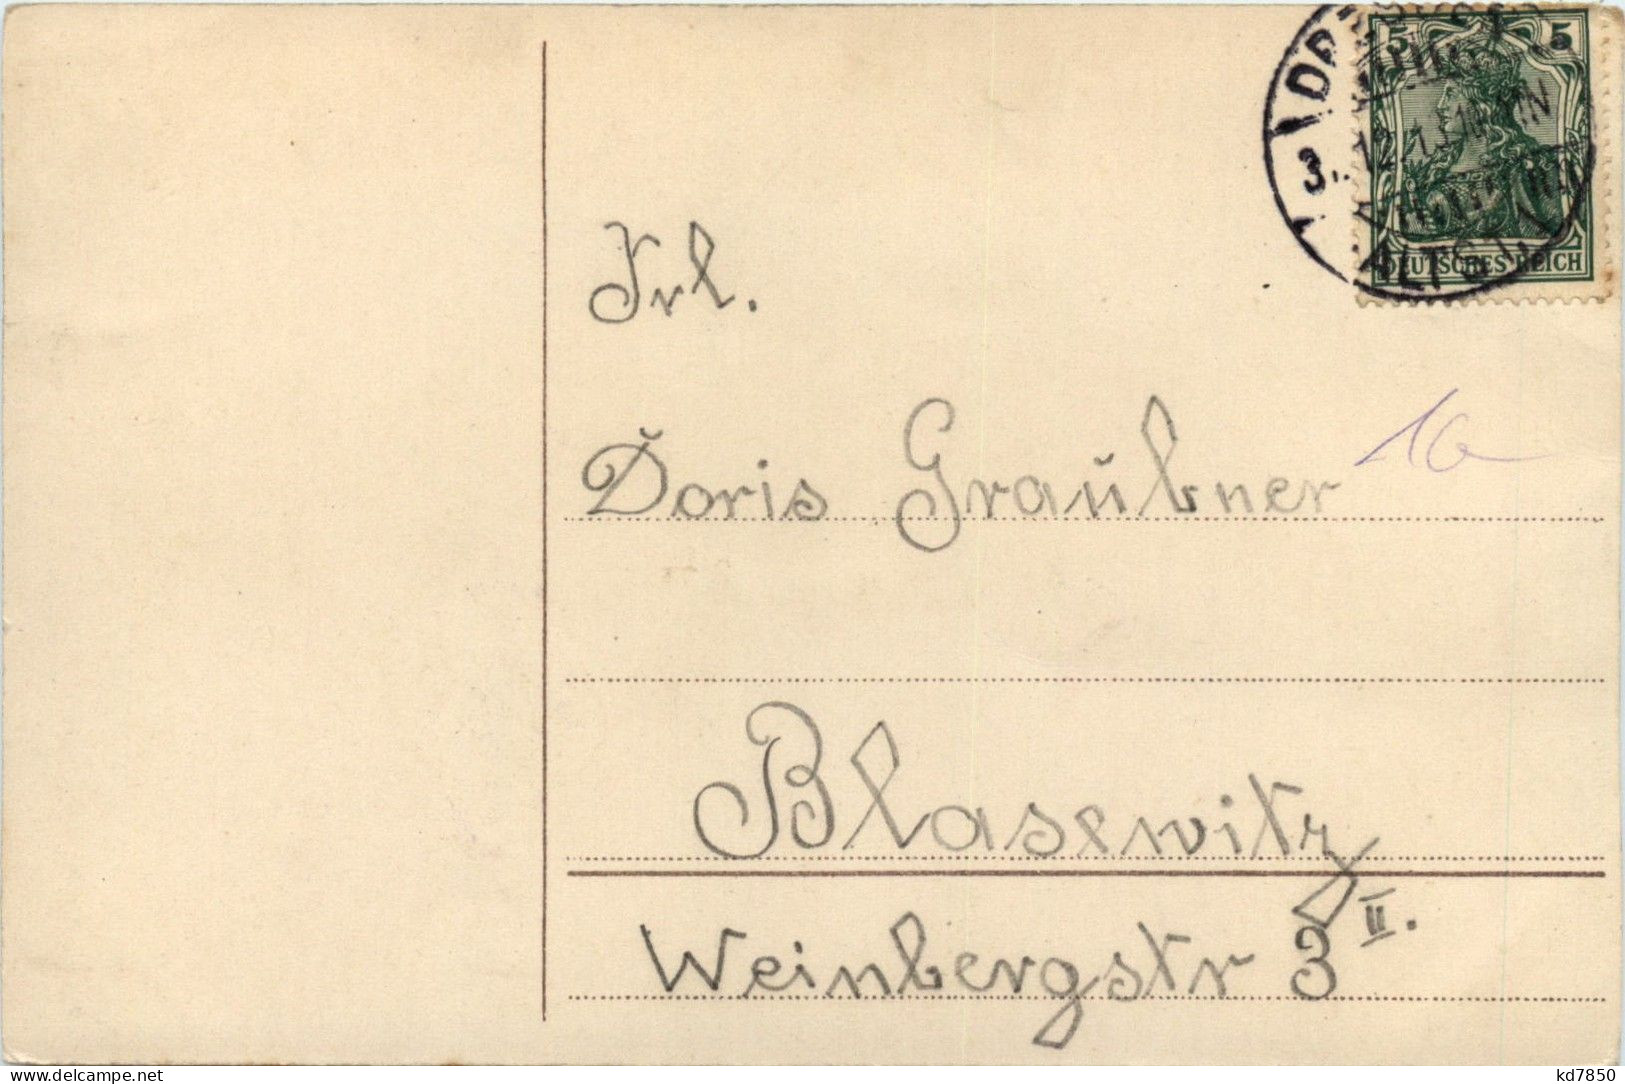 5 5
3.
ALTST. 1
DEUTSCHES REICH
Frl.
Doris Graubner
Blasewitz
Weinbergstr 3 II.
www.delcampe.net
kd7850